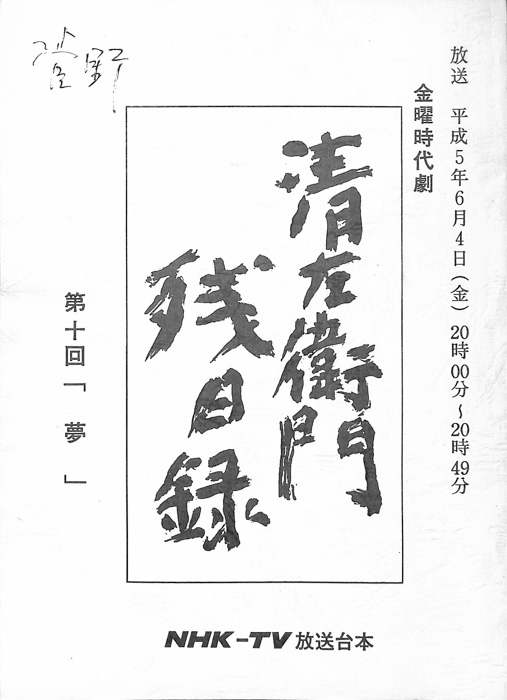 放送 平成5年6月4日(金) 20時00分～20時49分
金曜時代劇
清左衛門
残日録
第十回「夢」
NHK-TV 放送台本